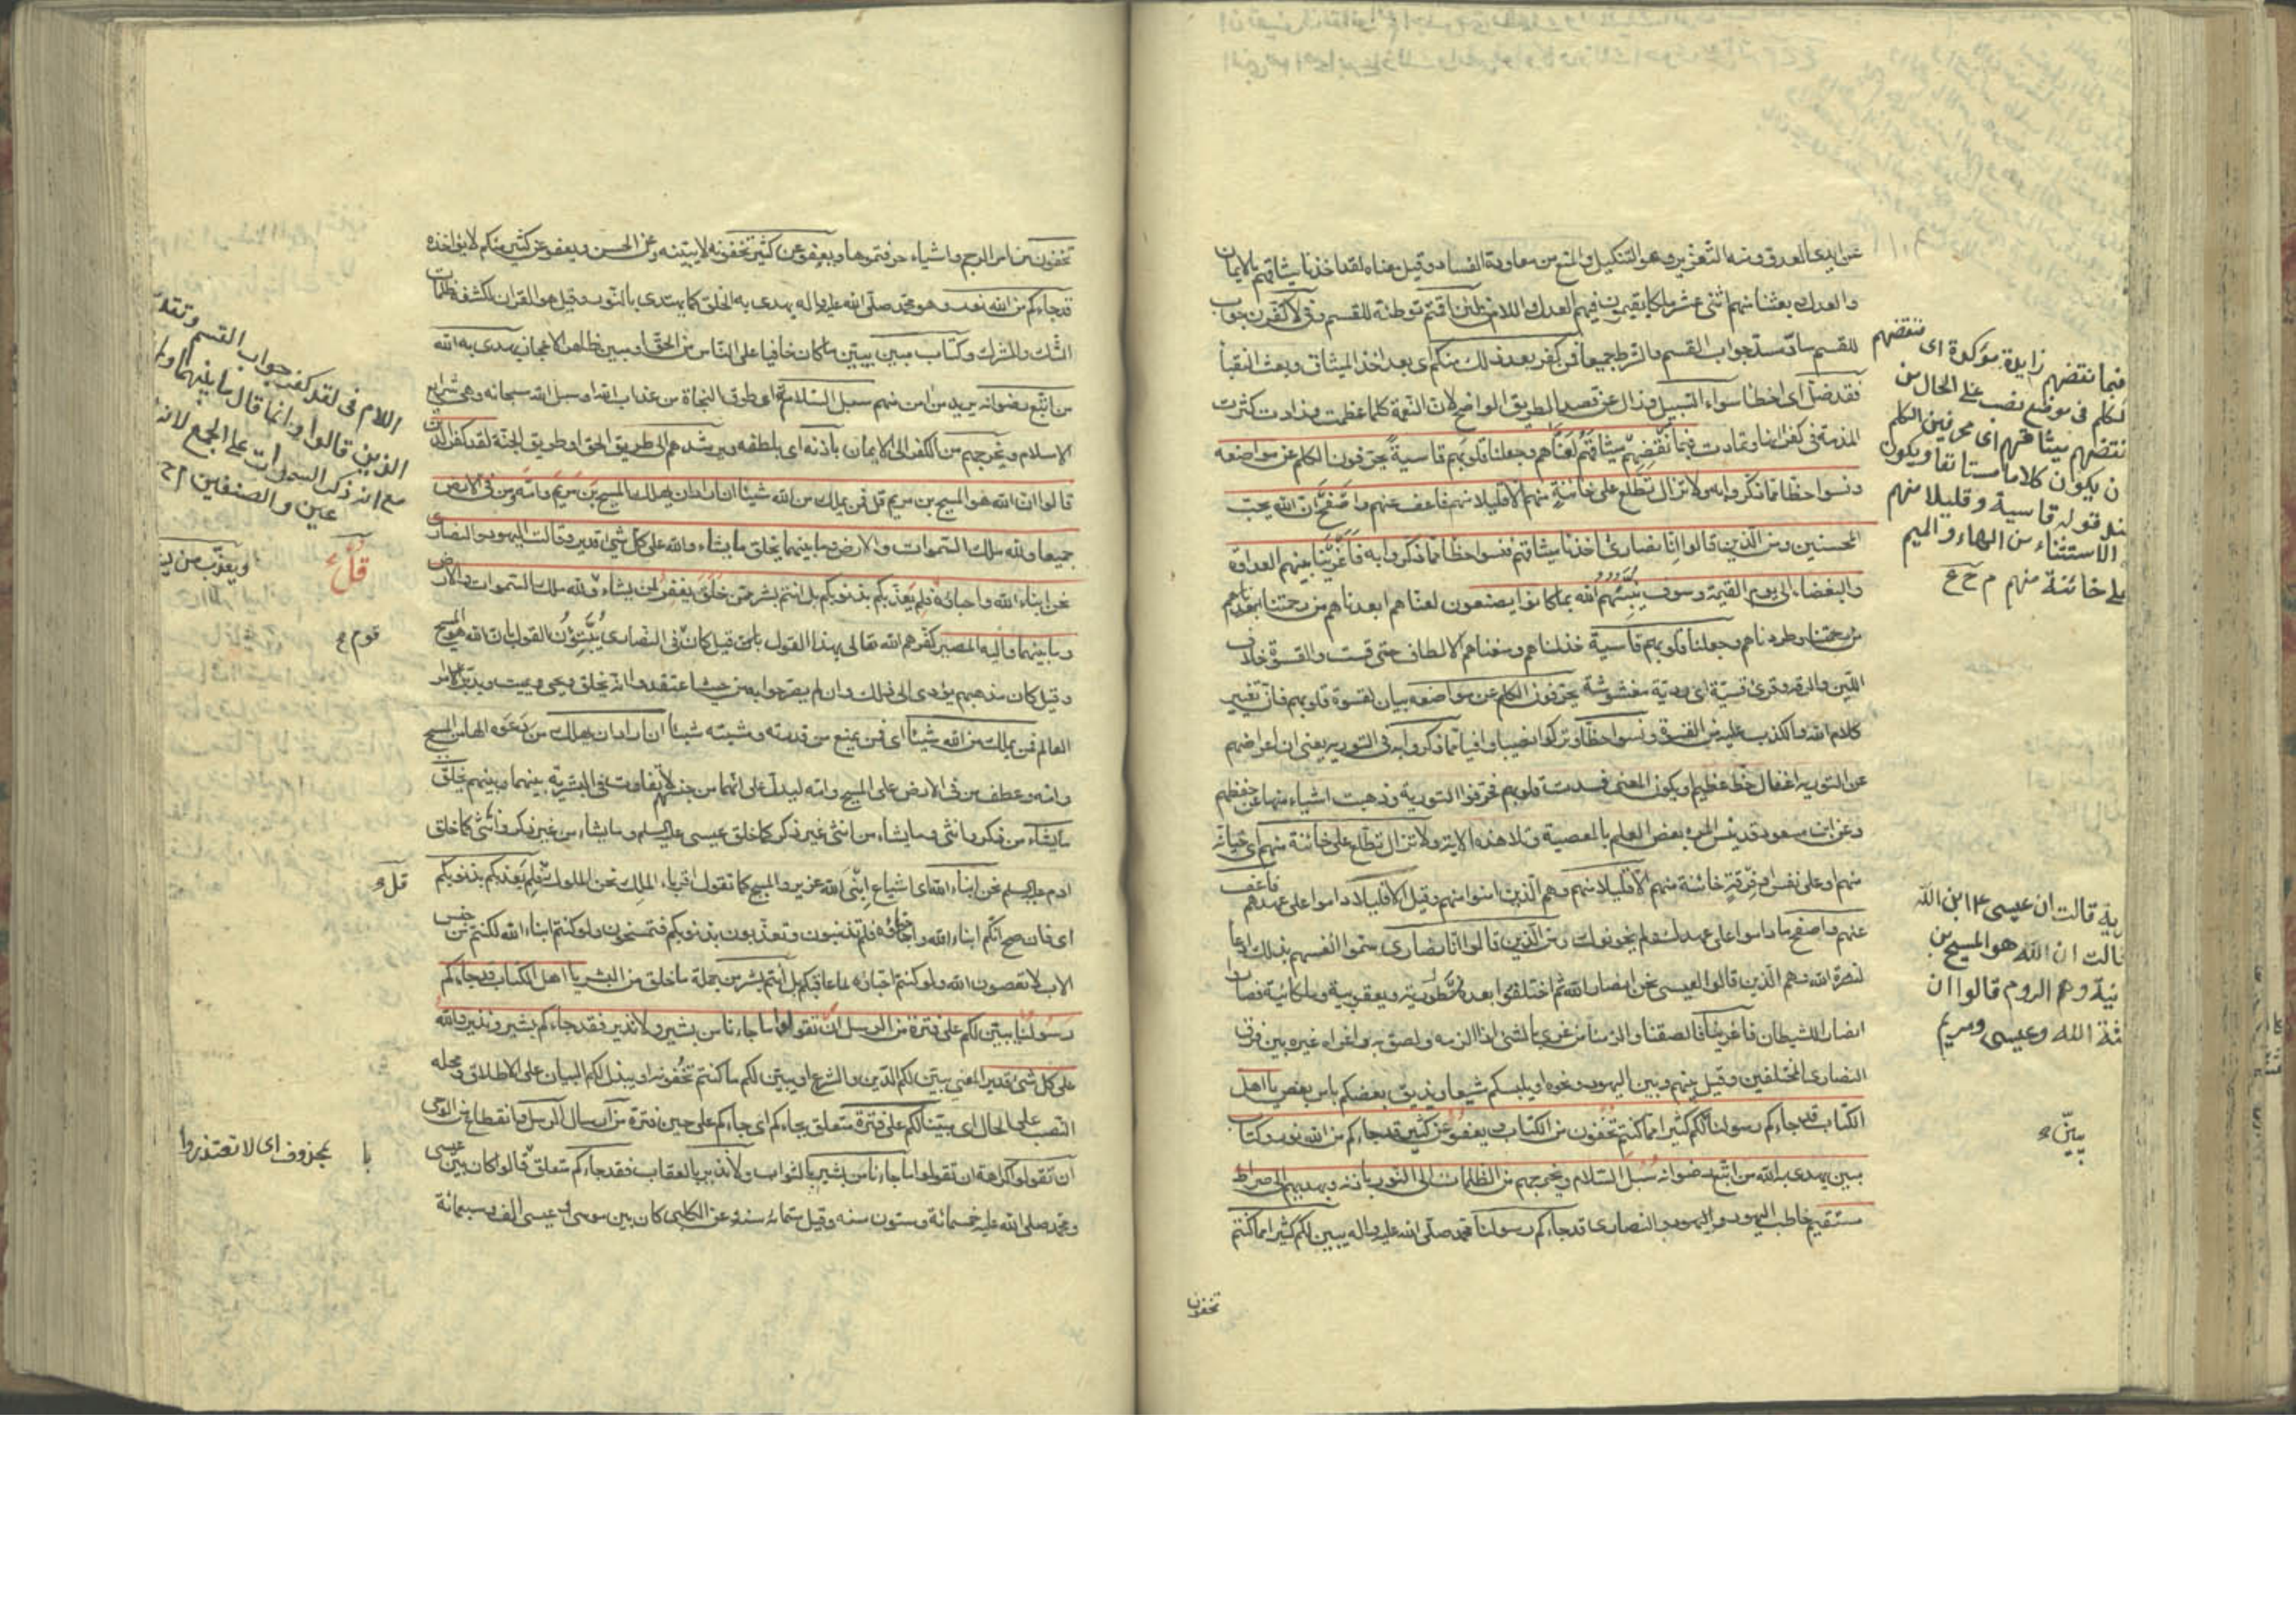 عن ايدى العدو ومنه التعزير وهو التنكيل والمنع من معاودة الفساد وقيل معناه لقد اخذنا ميثاقهم بالايمان
والعدل وبعثنا منهم اثنى عشر ملكا يقيمون فيهم العدل واللام فى لئن اقمتم توطئة للقسم وفى لاكفرن جواب
للقسم سادّ مسدّ جواب القسم والشرط جميعا فمن كفر بعد ذلك منكم اى بعد اخذ الميثاق وبعث النقبا
فقد ضلّ اى اخطأ سواء السبيل وزال عن قصد الطريق الواضح لان النعمة كلما عظمت وزادت كثرت
المذمة فى كفرانها وتمادت فبما نقضهم ميثاقهم لعنّاهم وجعلنا قلوبهم قاسية يحرّفون الكلم عن مواضعه
ونسوا حظا مما ذكروا به ولا تزال تطلع على خائنة منهم الا قليلا منهم فاعف عنهم واصفح ان الله يحبّ
المحسنين ومن الذين قالوا انا نصارى اخذنا ميثاقهم فنسوا حظا مما ذكروا به فاغرينا بينهم العداوة
والبغضاء الى يوم القيمة وسوف ينبئهم الله بما كانوا يصنعون لعنّاهم ابعدناهم من رحمتنا
من رحمتنا وطردناهم وجعلنا قلوبهم قاسية خذلناهم ومنعناهم الالطاف حتى قست والقسوة خلاف
اللين والرقة وقرئ قسيّة اى رديّة مغشوشة يحرّفون الكلم عن مواضعه بيان لقسوة قلوبهم فانّ تغيير
كلام الله والكذب عليه من القسوة ونسوا حظا وتركوا نصيبا وافيا مما ذكروا به فى التورية يعنى ان اعراضهم
عن التورية اغفال حظ عظيم او يكون المعنى فسدت قلوبهم فحرّفوا التورية وذهبت اشياء منها عن حفظهم
وعن ابن مسعود قد ينسى المرء بعض العلم بالمعصية وتلا هذه الاية ولا تزال تطلع على خائنة منهم اى خيانة
منهم او على نفس او فرقة خائنة منهم الا قليلا منهم وهم الذين امنوا منهم وقيل الا قليلا داموا على عهدهم فاعف
عنهم واصفح ما داموا على عهدك ولم يخونوك ومن الذين قالوا انا نصارى سمّوا انفسهم بذلك ادعا
لنصرة الله وهم الذين قالوا لعيسى نحن انصار الله ثم اختلفوا بعد نسطورية ويعقوبية وملكانية فصاروا
انصارا للشيطان فاغرينا فالصقنا والزمنا من غرى بالشئ اذا لزمه ولصق به واغراه غيره بين فرق
النصارى المختلفين وقيل بينهم وبين اليهود ونحوه او يلبسكم شيعا ويذيق بعضكم باس بعض يا اهل
الكتاب قد جاءكم رسولنا لكم كثيرا مما كنتم تخفون من الكتاب ويعفو عن كثير قد جاءكم من الله نور وكتاب
مبين يهدى به الله من اتبع رضوانه سبل السلام ويخرجهم من الظلمات الى النور باذنه ويهديهم الى صراط
مستقيم خاطب اليهود والنصارى قد جاءكم رسولنا محمد صلى الله عليه واله يبين لكم كثيرا مما كنتم
تخفون
فبما نقضهم زايدة مؤكدة اى فبنقضهم
الكلم فى موضع نصب على الحال من
نقضهم ميثاقهم اى محرفين الكلم
ن يكون كلاما مستانفا ويكون
عند قوله قاسية وقليلا منهم
الاستثناء من الهاء والميم
على خائنة منهم
رية قالت ان عيسى ابن الله
قالت ان الله هو المسيح بن
نية وهم الروم قالوا ان
ثة الله وعيسى ومريم
يبيّن
تخفون من امر الرجم واشياء حرفتموها ويعفو عن كثير مما تخفونه لا يبيّنه وعن الحسن ويعفو عن كثير منكم لا يؤاخذه
قد جاءكم من الله نور وهو محمد صلى الله عليه واله يهدى به الخلق كما يهتدى بالنور وقيل هو القران لكشفه ظلمات
الشك والشرك وكتاب مبين يبيّن ما كان خافيا على الناس من الحق او مبين ظاهر الاعجاز يهدى به الله
من اتبع رضوانه يريد من امن منهم سبل السلامة او طرق النجاة من عذاب الله او سبل الله سبحانه وهى شرايع
الاسلام ويخرجهم من الكفر الى الايمان باذنه اى بلطفه ويرشدهم الى طريق الحق او طريق الجنة لقد كفر الذين
قالوا ان الله هو المسيح بن مريم قل فمن يملك من الله شيئا ان اراد ان يهلك المسيح بن مريم وامه ومن فى الارض
جميعا ولله ملك السموات والارض وما بينهما يخلق ما يشاء والله على كل شئ قدير وقالت اليهود والنصارى
نحن ابناء الله واحباؤه فلم يعذبكم بذنوبكم بل انتم بشر ممن خلق يغفر لمن يشاء ولله ملك السموات والارض
وما بينهما واليه المصير كفرهم الله تعالى بهذا القول قيل كان فى النصارى يبتّون القول بان الله هو المسيح
وقيل كان مذهبهم يؤدى الى ذلك وان لم يصرحوا به من حيث اعتقدوا انه يخلق ويحيى ويميت ويدبر امر
العالم فمن يملك من الله شيئا اى فمن يمنع من قدرته ومشيته شيئا ان اراد ان يهلك من دعوه الها من المسيح
وامه وعطف من فى الارض على المسيح وامه ليدل على انهما من جنسهم لا تفاوت فى البشرية بينهما وبينهم يخلق
ما يشاء من ذكر وانثى وما يشاء من انثى غير ذكر كما خلق عيسى عليه السلم وما يشاء من غير ذكر وانثى كما خلق
ادم عليه السلم نحن ابناء الله اى اشياع ابنى الله عزير والمسيح كما تقول اقرباء الملك نحن الملوك فلم يعذبكم بذنوبكم
اى فان صح انكم ابناء الله واحباؤه فلم تذنبون وتعذبون بذنوبكم فتمسخون ولو كنتم ابناء الله لكنتم من جنس
الاب لا تعصون الله ولو كنتم احباؤه لما عاقبكم بل انتم بشر من جملة ما خلق من البشر يا اهل الكتاب قد جاءكم
رسولنا يبين لكم على فترة من الرسل ان تقولوا ما جاءنا من بشير ولا نذير فقد جاءكم بشير ونذير والله
على كل شئ قدير المعنى يبين لكم الدين والشرع او يبين لكم ما كنتم تخفونه او يبذل لكم البيان على الاطلاق ومحله
النصب على الحال اى مبيّنا لكم على فترة متعلق بجاءكم اى جاءكم على حين فترة من ارسال الرسل وانقطاع من الوحى
ان تقولوا كراهة ان تقولوا ما جاءنا من بشير بالثواب ولا نذير بالعقاب فقد جاءكم متعلق قالوا كان بين عيسى
ومحمد صلى الله عليه خمسمائة وستون سنه وقيل ستمائه سنه وعن الكلبى كان بين موسى وعيسى الف وسبعمائة
اللام فى لقد كفر جواب القسم وتقد
الذين قالوا وانما قال ما بينهما ولم
مع انه ذكر السموات على الجمع لانه
عين والصنفين
قوم
قل
بمحذوف اى لا تعتذروا